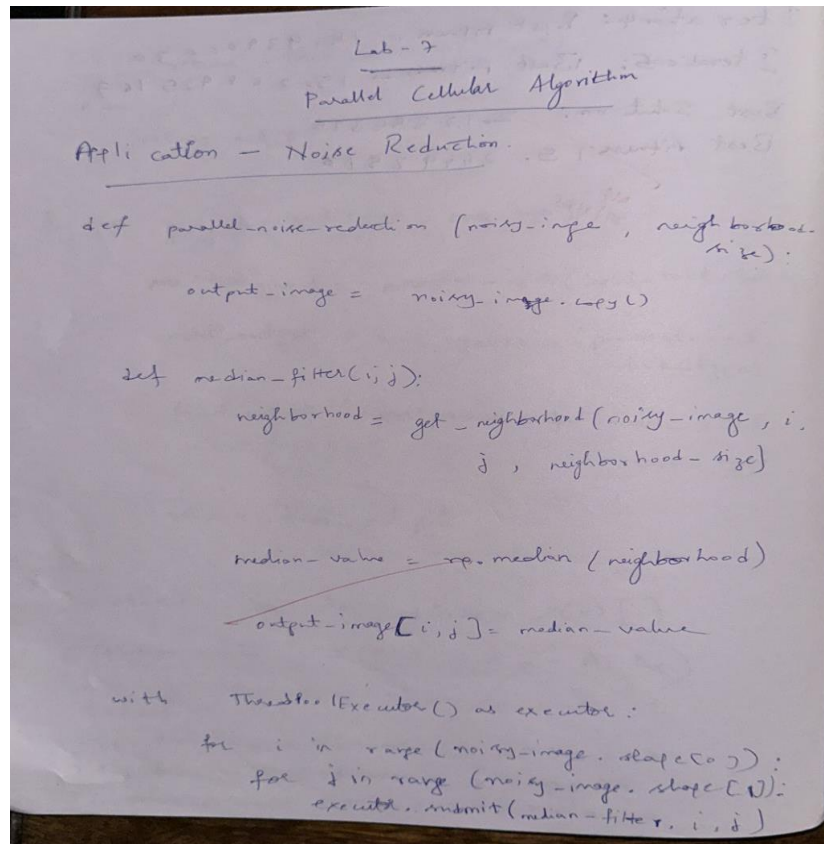 Lab - 7
Parallel Cellular Algorithm
Application - Noise Reduction.
def parallel_noise_reduction (noisy_inge, neighborhood-
size):
output_image = noisy_image.copy()
def median_filter(i, j):
neighborhood = get_neighborhood(noisy_image, i,
j, neighborhood_size)
median_value = np.median (neighborhood)
output_image[i, j] = median_value
with ThreadPoolExecutor() as executor:
for i in range (noisy_image.shape[0]):
for j in range (noisy_image.shape[1]):
executor.submit(median_filter, i, j)